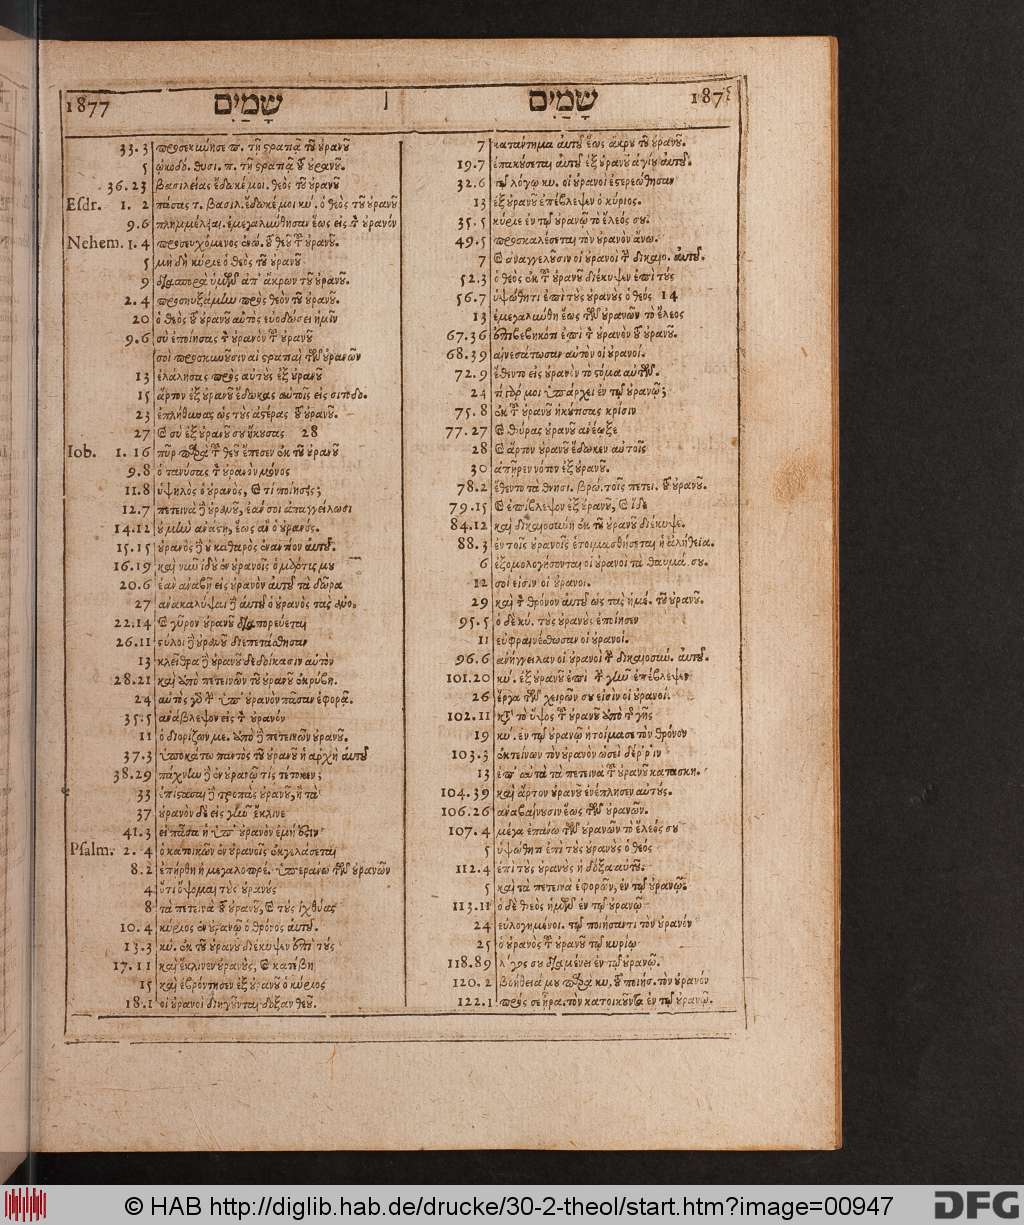 1877 שָׁמַיִם
33. 3 προσεκύνησε π. τῇ στρατιᾷ τοῦ οὐρανοῦ
5 ᾠκοδό. θυσι. π. τῇ στρατιᾷ τοῦ οὐρανοῦ.
36. 23 βασιλείας ἔδωκέ μοι. θεὸς τοῦ οὐρανοῦ
Esdr. 1. 2 πάσας τ. βασιλ. ἔδωκέ μοι κύ. ὁ θεὸς τοῦ οὐρανοῦ
9. 6 πλημμέλειαι. ἐμεγαλύνθησαν ἕως εἰς τὸν οὐρανόν
Nehem. 1. 4 προσευχόμενος ἐνώ. τοῦ θεοῦ τοῦ οὐρανοῦ.
5 μὴ δὴ κύριε ὁ θεὸς τοῦ οὐρανοῦ
9 διασπορὰ ὑμῶν ἀπ' ἄκρου τοῦ οὐρανοῦ.
2. 4 προσηυξάμην πρὸς θεὸν τοῦ οὐρανοῦ.
20 ὁ θεὸς τοῦ οὐρανοῦ αὐτὸς εὐοδώσει ἡμῖν
9. 6 σὺ ἐποίησας τὸν οὐρανὸν τοῦ οὐρανοῦ
σοὶ προσκυνοῦσιν αἱ στρατιαὶ τῶν οὐρανῶν
13 ἐλάλησας πρὸς αὐτοὺς ἐξ οὐρανοῦ
15 ἄρτον ἐξ οὐρανοῦ ἔδωκας αὐτοῖς εἰς σιτοδο.
23 ἐπλήθυνας ὡς τοὺς ἀστέρας τοῦ οὐρανοῦ.
27 καὶ σὺ ἐξ οὐρανοῦ σου ἤκουσας 28
Iob. 1. 16 πῦρ παρὰ τοῦ θεοῦ ἔπεσεν ἐκ τοῦ οὐρανοῦ
9. 8 ὁ τανύσας τὸν οὐρανὸν μόνος
11. 8 ὑψηλὸς ὁ οὐρανὸς, καὶ τί ποιήσεις;
12. 7 πετεινὰ τοῦ οὐρανοῦ, ἐάν σοι ἀπαγγείλωσι
14. 12 οὐ μὴν ἀναστῇ, ἕως ἂν ὁ οὐρανός.
15. 15 οὐρανὸς δὲ οὐ καθαρὸς ἐναντίον αὐτοῦ.
16. 19 καὶ νῦν ἰδοὺ ἐν οὐρανοῖς ὁ μάρτις μου
20. 6 ἐὰν ἀναβῇ εἰς οὐρανὸν αὐτοῦ τὰ δῶρα
27 ἀνακαλύψαι δὲ αὐτοῦ ὁ οὐρανὸς τὰς ἀνο.
22. 14 καὶ γῦρον οὐρανοῦ διαπορεύεται
26. 11 στύλοι τοῦ οὐρανοῦ διεπετάσθησαν
13 κλεῖθρα τοῦ οὐρανοῦ δεδοίκασιν αὐτόν
28. 21 καὶ ἀπὸ πετεινῶν τοῦ οὐρανοῦ ἐκρύβη.
24 αὐτὸς γὰρ τὴν ὑπ' οὐρανὸν πᾶσαν ἐφορᾷ.
35. 5 ἀνάβλεψον εἰς τὸν οὐρανόν
11 ὁ διορίζων με. ἀπὸ δὲ πετεινῶν οὐρανοῦ.
37. 3 ὑποκάτω παντὸς τοῦ οὐρανοῦ ἡ ἀρχὴ αὐτοῦ
38. 29 πάχνην δὲ ἐν οὐρανῷ τίς τέτοκεν;
33 ἐπίστασαι δὲ τροπὰς οὐρανοῦ, ἢ τὰ
37 οὐρανὸν δὲ εἰς γῆν ἔκλινε
41. 3 εἰ πᾶσα ἡ ὑπ' οὐρανὸν ἐμή ἐστιν
Psalm. 2. 4 ὁ κατοικῶν ἐν οὐρανοῖς ἐκγελάσεται
8. 2 ἐπήρθη ἡ μεγαλοπρέ. ὑπεράνω τῶν οὐρανῶν
4 ὅτι ὄψομαι τοὺς οὐρανοὺς
8 τὰ πετεινὰ τοῦ οὐρανοῦ, καὶ τοὺς ἰχθύας
10. 4 κύριος ἐν οὐρανῷ ὁ θρόνος αὐτοῦ.
13. 3 κύ. ἐκ τοῦ οὐρανοῦ διέκυψεν ἐπὶ τοὺς
17. 11 καὶ ἔκλινεν οὐρανοὺς, καὶ κατέβη
15 καὶ ἐβρόντησεν ἐξ οὐρανοῦ ὁ κύριος
18. 1 οἱ οὐρανοὶ διηγοῦνται δόξαν θεοῦ.
שָׁמַיִם 187
7 κατάντημα αὐτοῦ ἕως ἄκρου τοῦ οὐρανοῦ.
19. 7 ἐπακούσεται αὐτοῦ ἐξ οὐρανοῦ ἁγίου αὐτοῦ.
32. 6 τῷ λόγῳ κυ. οἱ οὐρανοὶ ἐστερεώθησαν
13 ἐξ οὐρανοῦ ἐπέβλεψεν ὁ κύριος.
35. 5 κύριε ἐν τῷ οὐρανῷ τὸ ἔλεός σου.
49. 5 προσκαλέσεται τὸν οὐρανὸν ἄνω.
7 καὶ ἀναγγελοῦσιν οἱ οὐρανοὶ τὴν δικαιο. αὐτοῦ.
52. 3 ὁ θεὸς ἐκ τοῦ οὐρανοῦ διέκυψεν ἐπὶ τοὺς
56. 7 ὑψώθητι ἐπὶ τοὺς οὐρανοὺς ὁ θεός 14
13 ἐμεγαλύνθη ἕως τῶν οὐρανῶν τὸ ἔλεος
67. 36 ἐπιβεβηκότι ἐπὶ τὸν οὐρανὸν τοῦ οὐρανοῦ.
68. 39 αἰνεσάτωσαν αὐτὸν οἱ οὐρανοί.
72. 9 ἔθεντο εἰς οὐρανὸν τὸ στόμα αὐτῶν.
24 τί γάρ μοι ὑπάρχει ἐν τῷ οὐρανῷ;
75. 8 ἐκ τοῦ οὐρανοῦ ἠκούτισας κρίσιν
77. 27 καὶ θύρας οὐρανοῦ ἀνέῳξε
28 καὶ ἄρτον οὐρανοῦ ἔδωκεν αὐτοῖς
30 ἀπῆρεν νότον ἐξ οὐρανοῦ.
78. 2 ἔθεντο τὰ θνησι. βρώ. τοῖς πετει. τοῦ οὐρανοῦ.
79. 15 καὶ ἐπίβλεψον ἐξ οὐρανοῦ, καὶ ἴδε
84. 12 καὶ δικαιοσύνη ἐκ τοῦ οὐρανοῦ διέκυψε.
88. 3 ἐν τοῖς οὐρανοῖς ἑτοιμασθήσεται ἡ ἀλήθεια.
6 ἐξομολογήσονται οἱ οὐρανοὶ τὰ θαυμά. σου.
12 σοί εἰσιν οἱ οὐρανοι.
29 καὶ τὸν θρόνον αὐτοῦ ὡς τὰς ἡμέ. τοῦ οὐρανοῦ.
95. 5 ὁ δὲ κύ. τοὺς οὐρανοὺς ἐποίησεν
11 εὐφραινέσθωσαν οἱ οὐρανοί.
96. 6 ἀνήγγειλαν οἱ οὐρανοὶ τὴν δικαιοσύ. αὐτοῦ.
101. 20 κύ. ἐξ οὐρανοῦ ἐπὶ τὴν γῆν ἐπέβλεψεν
26 ἔργα τῶν χειρῶν σου εἰσὶν οἱ οὐρανοί.
102. 11 κατὰ τὸ ὕψος τοῦ οὐρανοῦ ἀπὸ τῆς γῆς
19 κύ. ἐν τῷ οὐρανῷ ἡτοίμασε τὸν θρόνον
103. 3 ἐκτείνων τὸν οὐρανὸν ὡσεὶ δέρριν
13 ἐπ' αὐτὰ τὰ πετεινὰ τοῦ οὐρανοῦ κατασκη.
104. 39 καὶ ἄρτον οὐρανοῦ ἐνέπλησεν αὐτούς.
106. 26 ἀναβαίνουσιν ἕως τῶν οὐρανῶν.
107. 4 μέγα ἐπάνω τῶν οὐρανῶν τὸ ἔλεός σου
5 ὑψώθητι ἐπὶ τοὺς οὐρανοὺς ὁ θεός
112. 4 ἐπὶ τοὺς οὐρανοὺς ἡ δόξα αὐτοῦ.
5 καὶ τὰ πετεινὰ ἐφορῶν, ἐν τῷ οὐρανῷ.
113. 11 ὁ δὲ θεὸς ἡμῶν ἐν τῷ οὐρανῷ
24 εὐλογημένοι. τῷ ποιήσαντι τὸν οὐρανόν
25 ὁ οὐρανὸς τοῦ οὐρανοῦ τῷ κυρίῳ
118. 89 λόγος σου διαμένει ἐν τῷ οὐρανῷ.
120. 2 βοήθειά μου παρὰ κυ. τοῦ ποιήσ. τὸν οὐρανόν
122. 1 πρός σε ἦρα. τὸν κατοικοῦντα ἐν τῷ οὐρανῷ.
© HAB http://diglib.hab.de/drucke/30-2-theol/start.htm?image=00947
DFG